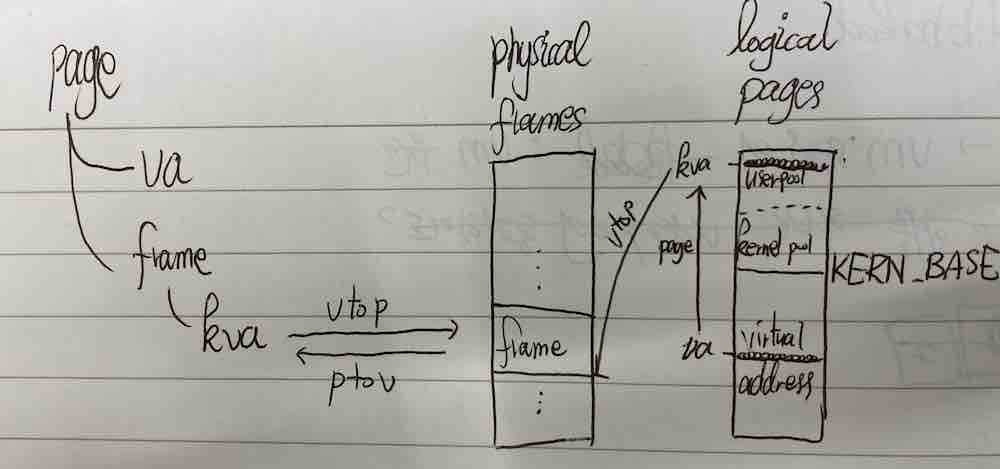 page
va
frame
kva
vtop
ptov
physical
frames
frame
vtop
kva
page
va
logical
pages
userpool
kernel pool
KERN_BASE
virtual
address